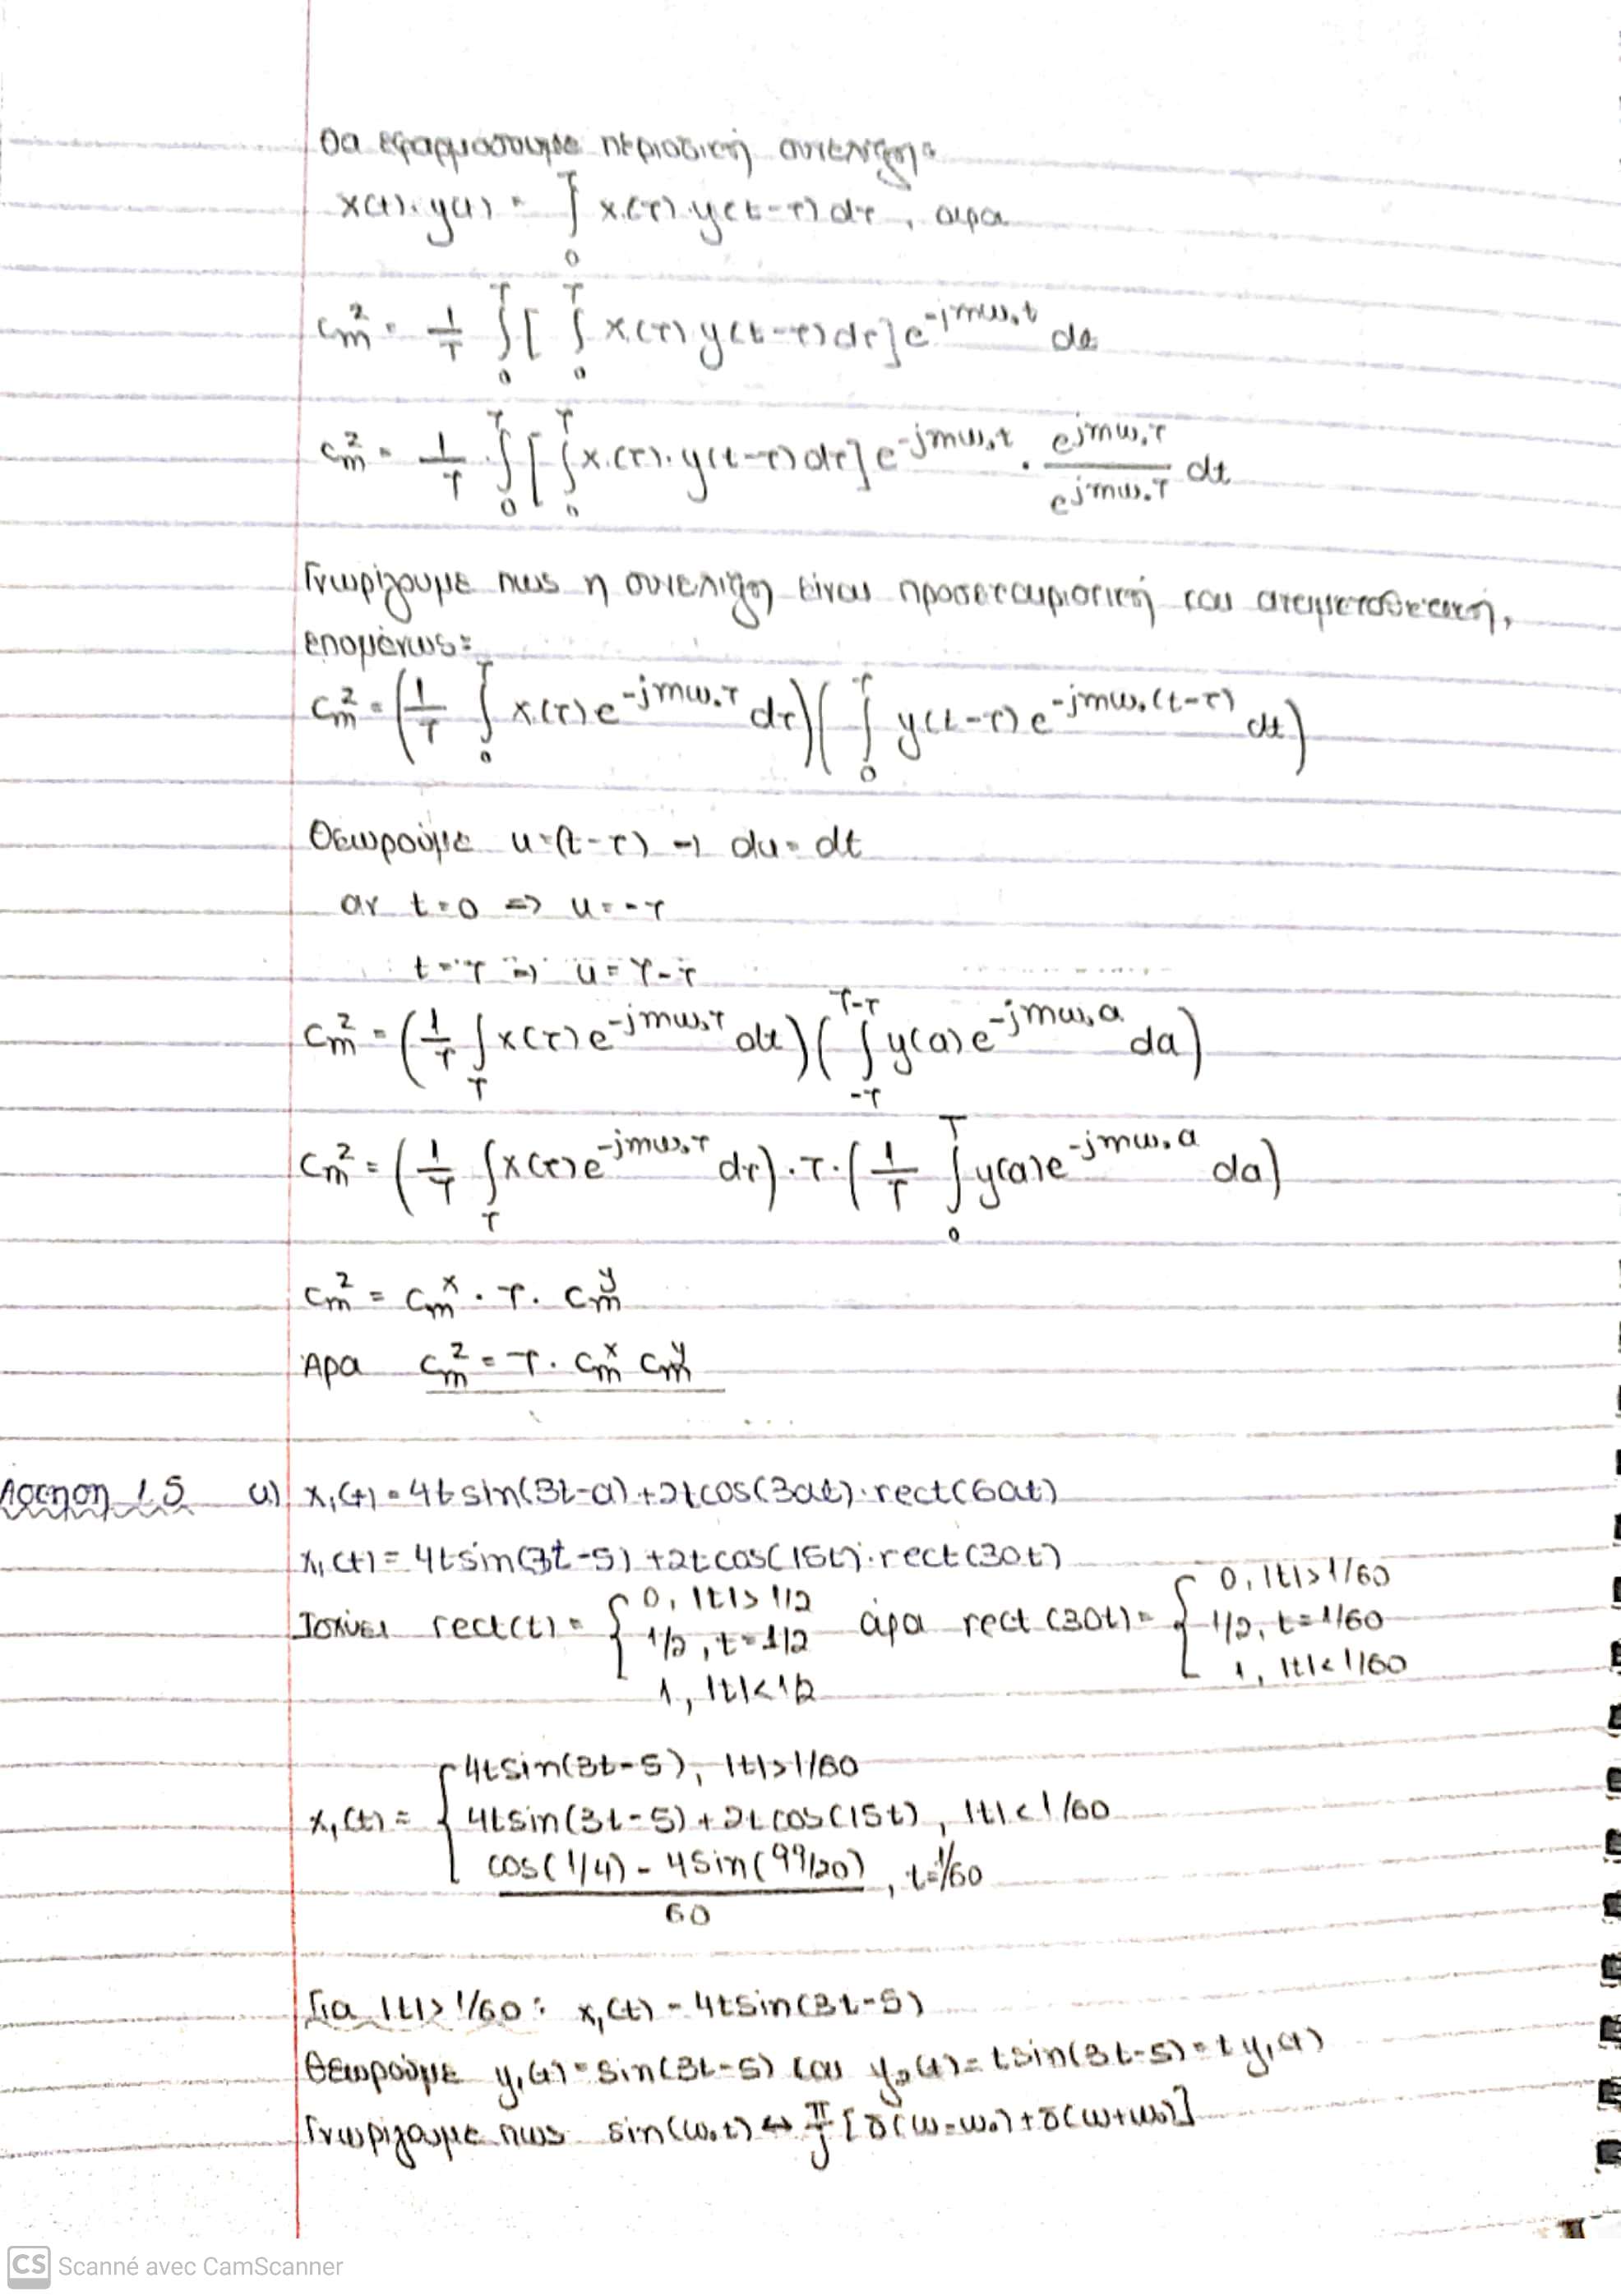 Θα εφαρμόσουμε περιοδική συνέλιξη:
x(t)·y(t) = ∫₀ᵀ x(τ)·y(t-τ)dτ, άρα
c_m^z = 1/T ∫₀ᵀ [ ∫₀ᵀ x(τ) y(t-τ)dτ ] e^{-jmω₀t} dt
c_m^z = 1/T · ∫₀ᵀ [ ∫₀ᵀ x(τ)·y(t-τ)dτ ] e^{-jmω₀t} · e^{jmω₀τ}/e^{jmω₀τ} dt
Γνωρίζουμε πως η συνέλιξη είναι προσεταιριστική και αντιμεταθετική,
επομένως:
c_m^z = (1/T ∫₀ᵀ x(τ)e^{-jmω₀τ} dτ)( ∫₀ᵀ y(t-τ) e^{-jmω₀(t-τ)} dt)
Θεωρούμε u=(t-τ) → du=dt
αν t=0 => u=-τ
t=T => u=T-τ
c_m^z = (1/T ∫_T x(τ)e^{-jmω₀τ} dt)( ∫_{-τ}^{T-τ} y(a)e^{-jmω₀a} da)
c_m^z = (1/T ∫_T x(τ)e^{-jmω₀τ} dτ)·T·(1/T ∫₀ᵀ y(a)e^{-jmω₀a} da)
c_m^z = c_m^x · T · c_m^y
Άρα c_m^z = T · c_m^x c_m^y
Άσκηση 1.5 α) x₁(t) = 4t sin(3t-a) + 2t cos(3at)·rect(6at)
x₁(t) = 4t sin(3t-5) + 2t cos(15t)·rect(30t)
Ισχύει rect(t) = { 0, |t|>1/2 ; 1/2, t=1/2 ; 1, |t|<1/2 άρα rect(30t) = { 0, |t|>1/60 ; 1/2, t=1/60 ; 1, |t|<1/60
x₁(t) = { 4t sin(3t-5), |t|>1/60
4t sin(3t-5) + 2t cos(15t), |t|<1/60
(cos(1/4) - 4sin(99/20))/60, t=1/60
Για |t|>1/60: x₁(t) = 4t sin(3t-5)
Θεωρούμε y₁(t) = sin(3t-5) και y₂(t) = t sin(3t-5) = t y₁(t)
Γνωρίζουμε πως sin(ω₀t) ↔ π/j [δ(ω-ω₀)+δ(ω+ω₀)]
CS Scanné avec CamScanner